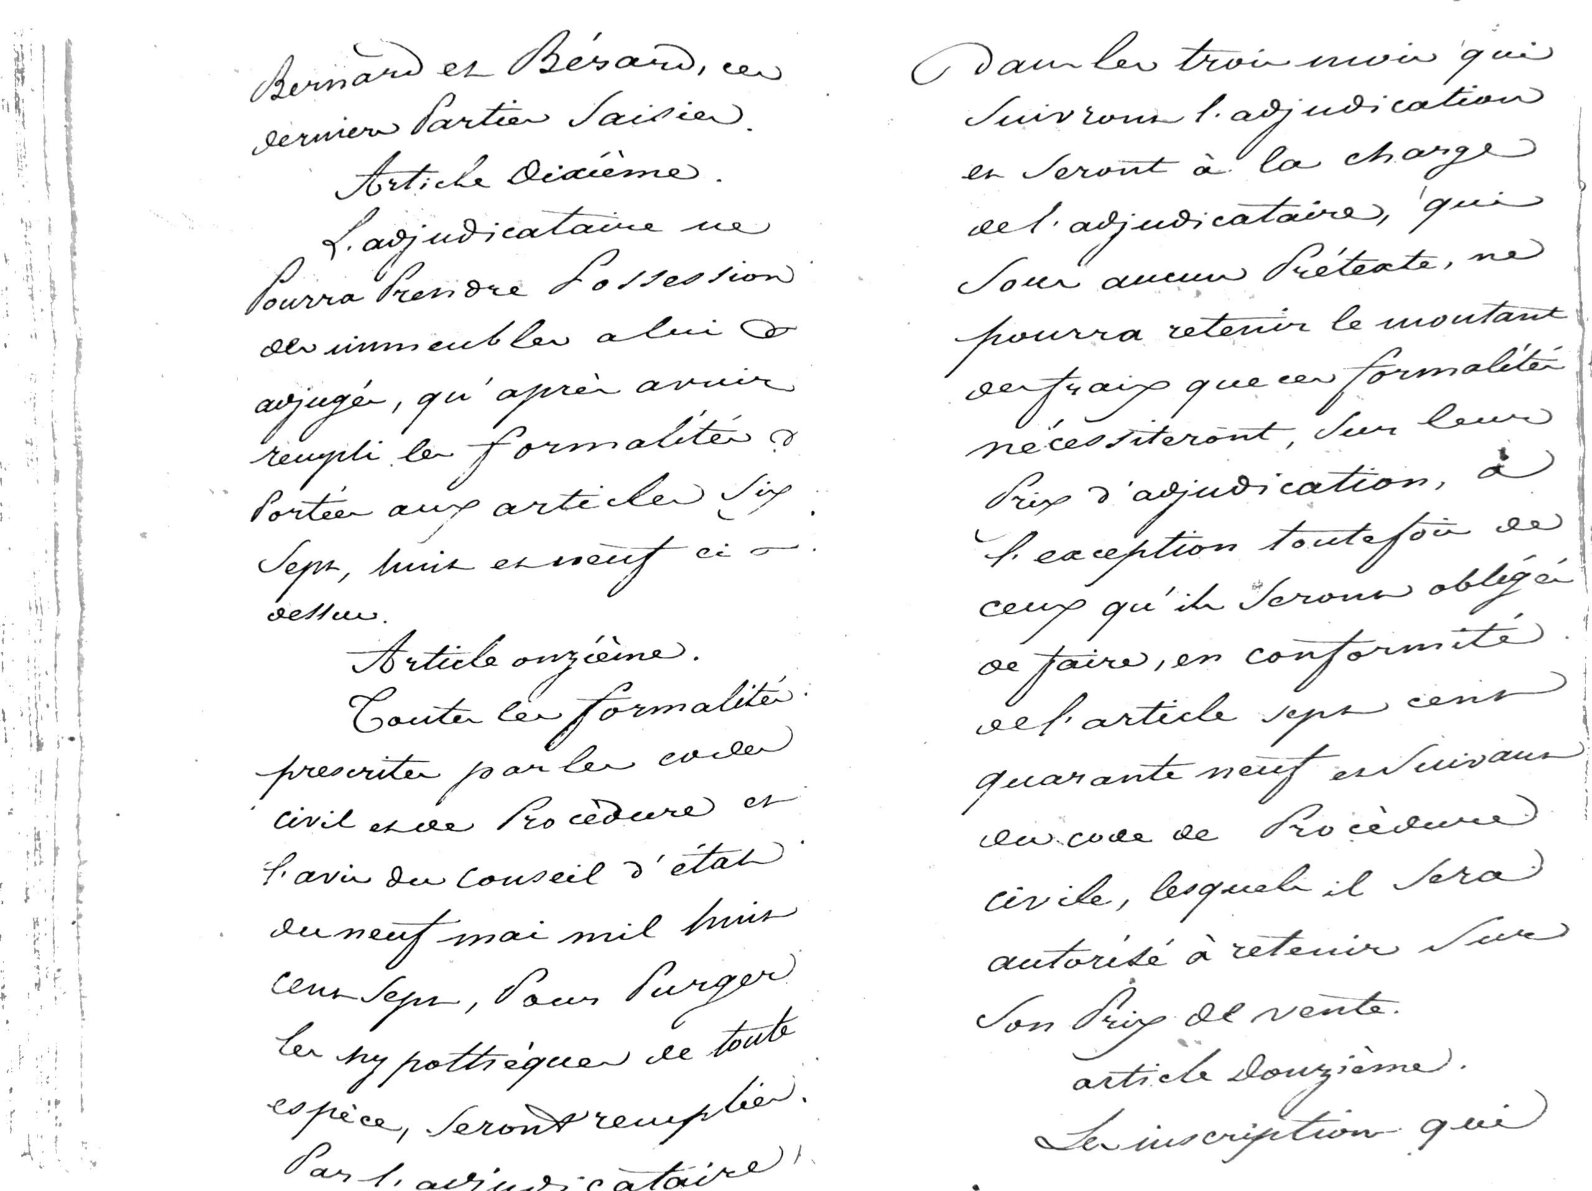 Bernard et Bésard, ces
derniers Parties Saisies.
Article Dixième.
L'adjudicataire ne
Pourra Prendre Possession
des immeubles a lui
adjugés, qu'après avoir
rempli les formalités
Portées aux articles Six
Sept, huit et neuf ci -
dessus.
Article onzième.
Toutes les formalités
prescrites par les codes
civil et de Procèdure et
l'avis du Conseil d'état
du neuf mai mil huit
cent Sept, Pour Purger
les hypothéques de toute
espèce, Seront remplies
Par l'adjudicataire
Dans les trois mois qui
Suivront l'adjudication
et Seront à la charge
de l'adjudicataire, qui
Sous aucun Prétexte, ne
pourra retenir le montant
des fraix que ces formalités
nécessiteront, Sur leur
Prix d'adjudication, à
l'exception toutefois de
ceux qu'ils Seront obligés
de faire, en conformité
de l'article sept cent
quarante neuf et Suivant
du code de Procèdure
civile, lesquels il Sera
autorisé à retenir Sur
Son Prix de vente.
article Douzième.
Les inscription qui